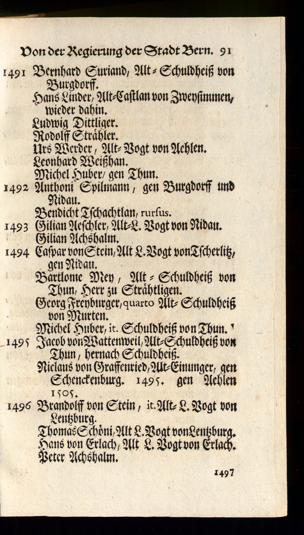 Von der Regierung der Stadt Bern. 91
1491 Bernhard Suriand, Alt-Schuldheiß von
Burgdorff.
Hans Linder, Alt-Castlan von Zweysimmen,
wieder dahin.
Ludwig Dittliger.
Rodolff Strähler.
Urs Werder, Alt-Vogt von Aehlen.
Leonhard Weißhan.
Michel Huber, gen Thun.
1492 Anthoni Spilmann, gen Burgdorff und
Nidau.
Bendicht Tschachtlan, rursus.
1493 Gilian Aeschler, Alt-L. Vogt von Nidau.
Gilian Achshalm.
1494 Caspar von Stein, Alt L. Vogt von Tscherlitz,
gen Nidau.
Bartlome Mey, Alt-Schuldheiß von
Thun, Herr zu Strähtligen.
Georg Freyburger, quarto Alt-Schuldheiß
von Murten.
Michel Huber, it. Schuldheiß von Thun.
1495 Jacob von Wattenweil, Alt-Schuldheiß von
Thun, hernach Schuldheiß.
Niclaus von Graffenried, Alt-Einunger, gen
Schenckenburg. 1495. gen Aehlen
1505.
1496 Brandolff von Stein, it. Alt-L. Vogt von
Lentzburg.
Thomas Schöni, Alt L. Vogt von Lentzburg.
Hans von Erlach, Alt L. Vogt von Erlach.
Peter Achshalm.
1497